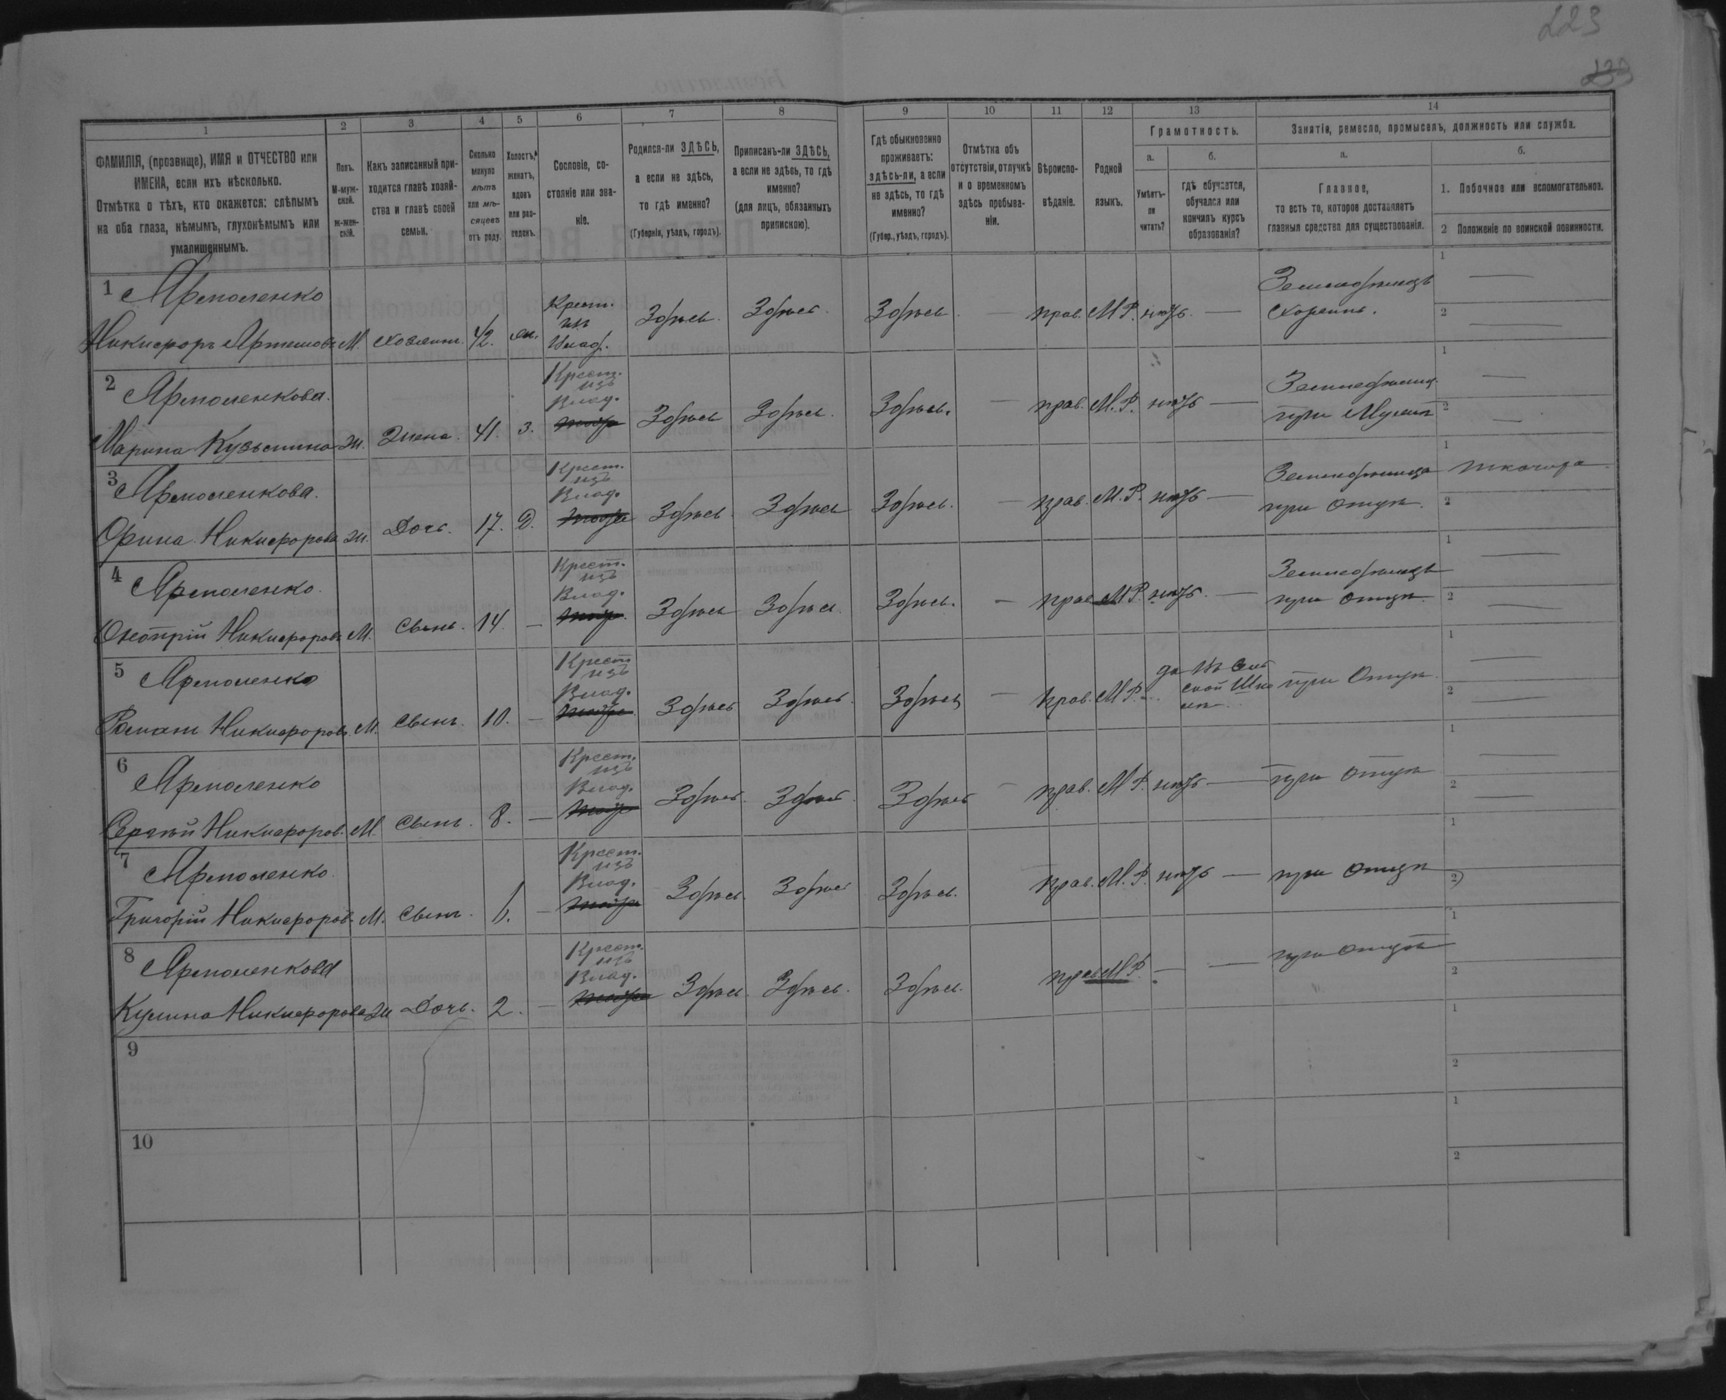 223
233
1
2
3
4
5
6
7
8
9
10
11
12
13
14
ФАМИЛІЯ, (прозвище), ИМЯ и ОТЧЕСТВО или
ИМЕНА, если ихъ нѣсколько.
Отмѣтка о тѣхъ, кто окажется: слѣпымъ
на оба глаза, нѣмымъ, глухонѣмымъ или
умалишеннымъ.
Полъ.
М-муж-
ской.
ж-жен-
скій.
Какъ записанный при-
ходится главѣ хозяй-
ства и главѣ своей
семьи.
Сколько
минуло
лѣтъ
или мѣ-
сяцевъ
отъ роду.
Холостъ,
женатъ,
вдовъ
или раз-
веденъ.
Сословіе, со-
стояніе или зва-
ніе.
Родился-ли ЗДѢСЬ,
а если не здѣсь,
то гдѣ именно?
(Губернія, уѣздъ, городъ).
Приписанъ-ли ЗДѢСЬ,
а если не здѣсь, то гдѣ
именно?
(для лицъ, обязанныхъ
припискою).
Гдѣ обыкновенно
проживаетъ:
здѣсь-ли, а если
не здѣсь, то гдѣ
именно?
(Губер., уѣздъ, городъ).
Отмѣтка объ
отсутствіи, отлучкѣ
и о временномъ
здѣсь пребыва-
ніи.
Вѣроиспо-
вѣданіе.
Родной
языкъ.
Грамотность.
а.
Умѣетъ-
ли
читать?
б.
гдѣ обучается,
обучался или
кончилъ курсъ
образованія?
Занятія, ремесло, промыселъ, должность или служба.
а.
Главное,
то есть то, которое доставляетъ
главныя средства для существованія.
б.
1. Побочное или вспомогательное.
2 Положеніе по воинской повинности.
1 Ярмоленко
Никифоръ Артемовъ М. хозяин. 42. жн.
Крест.
изъ
Влад.
Здѣсь. Здѣсь. Здѣсь — прав. М.Р. нѣтъ. —
Земледѣлецъ
хозяинъ.
1 —
2 —
2 Ярмоленкова.
Марина Кузьмина ж. Жена. 41. з.
Крест.
изъ
Влад.
Здѣсь Здѣсь. Здѣсь. — прав. М.Р. нѣтъ —
Земледѣлица
при Мужѣ
1 —
2 —
3 Ярмоленкова.
Орина Никифорова ж. Дочь. 17. Д.
Крест.
изъ
Влад.
Здѣсь Здѣсь Здѣсь. — прав. М.Р. нѣтъ —
Земледѣлица
при Отцѣ.
1 ткачиха
2
4 Ярмоленко.
Онопрій Никифоровъ М. сынъ. 14. —
Крест.
изъ
Влад.
Здѣсь Здѣсь. Здѣсь. — прав. М.Р. нѣтъ. —
Земледѣлецъ
при Отцѣ.
1 —
2 —
5 Ярмоленко
Романъ Никифоровъ М. сынъ. 10. —
Крест.
изъ
Влад.
Здѣсь Здѣсь. Здѣсь — прав. М.Р. да
при Отцѣ.
1 —
2 —
6 Ярмоленко
Сергѣй Никифоров. М. сынъ. 8. —
Крест.
изъ
Влад.
Здѣсь. Здѣсь Здѣсь — прав. М.Р. нѣтъ —
при Отцѣ
1 —
2 —
7 Ярмоленко
Григорій Никифоров. М. сынъ. 6. —
Крест.
изъ
Влад.
Здѣсь. Здѣсь Здѣсь. прав. М.Р. нѣтъ —
при Отцѣ
1
2
8 Ярмоленкова
Кулина Никифорова ж Дочь. 2. —
Крест.
изъ
Влад.
Здѣсь Здѣсь. Здѣсь. прав. М.Р. — —
при Отцѣ
1
2
9
1
2
10
1
2